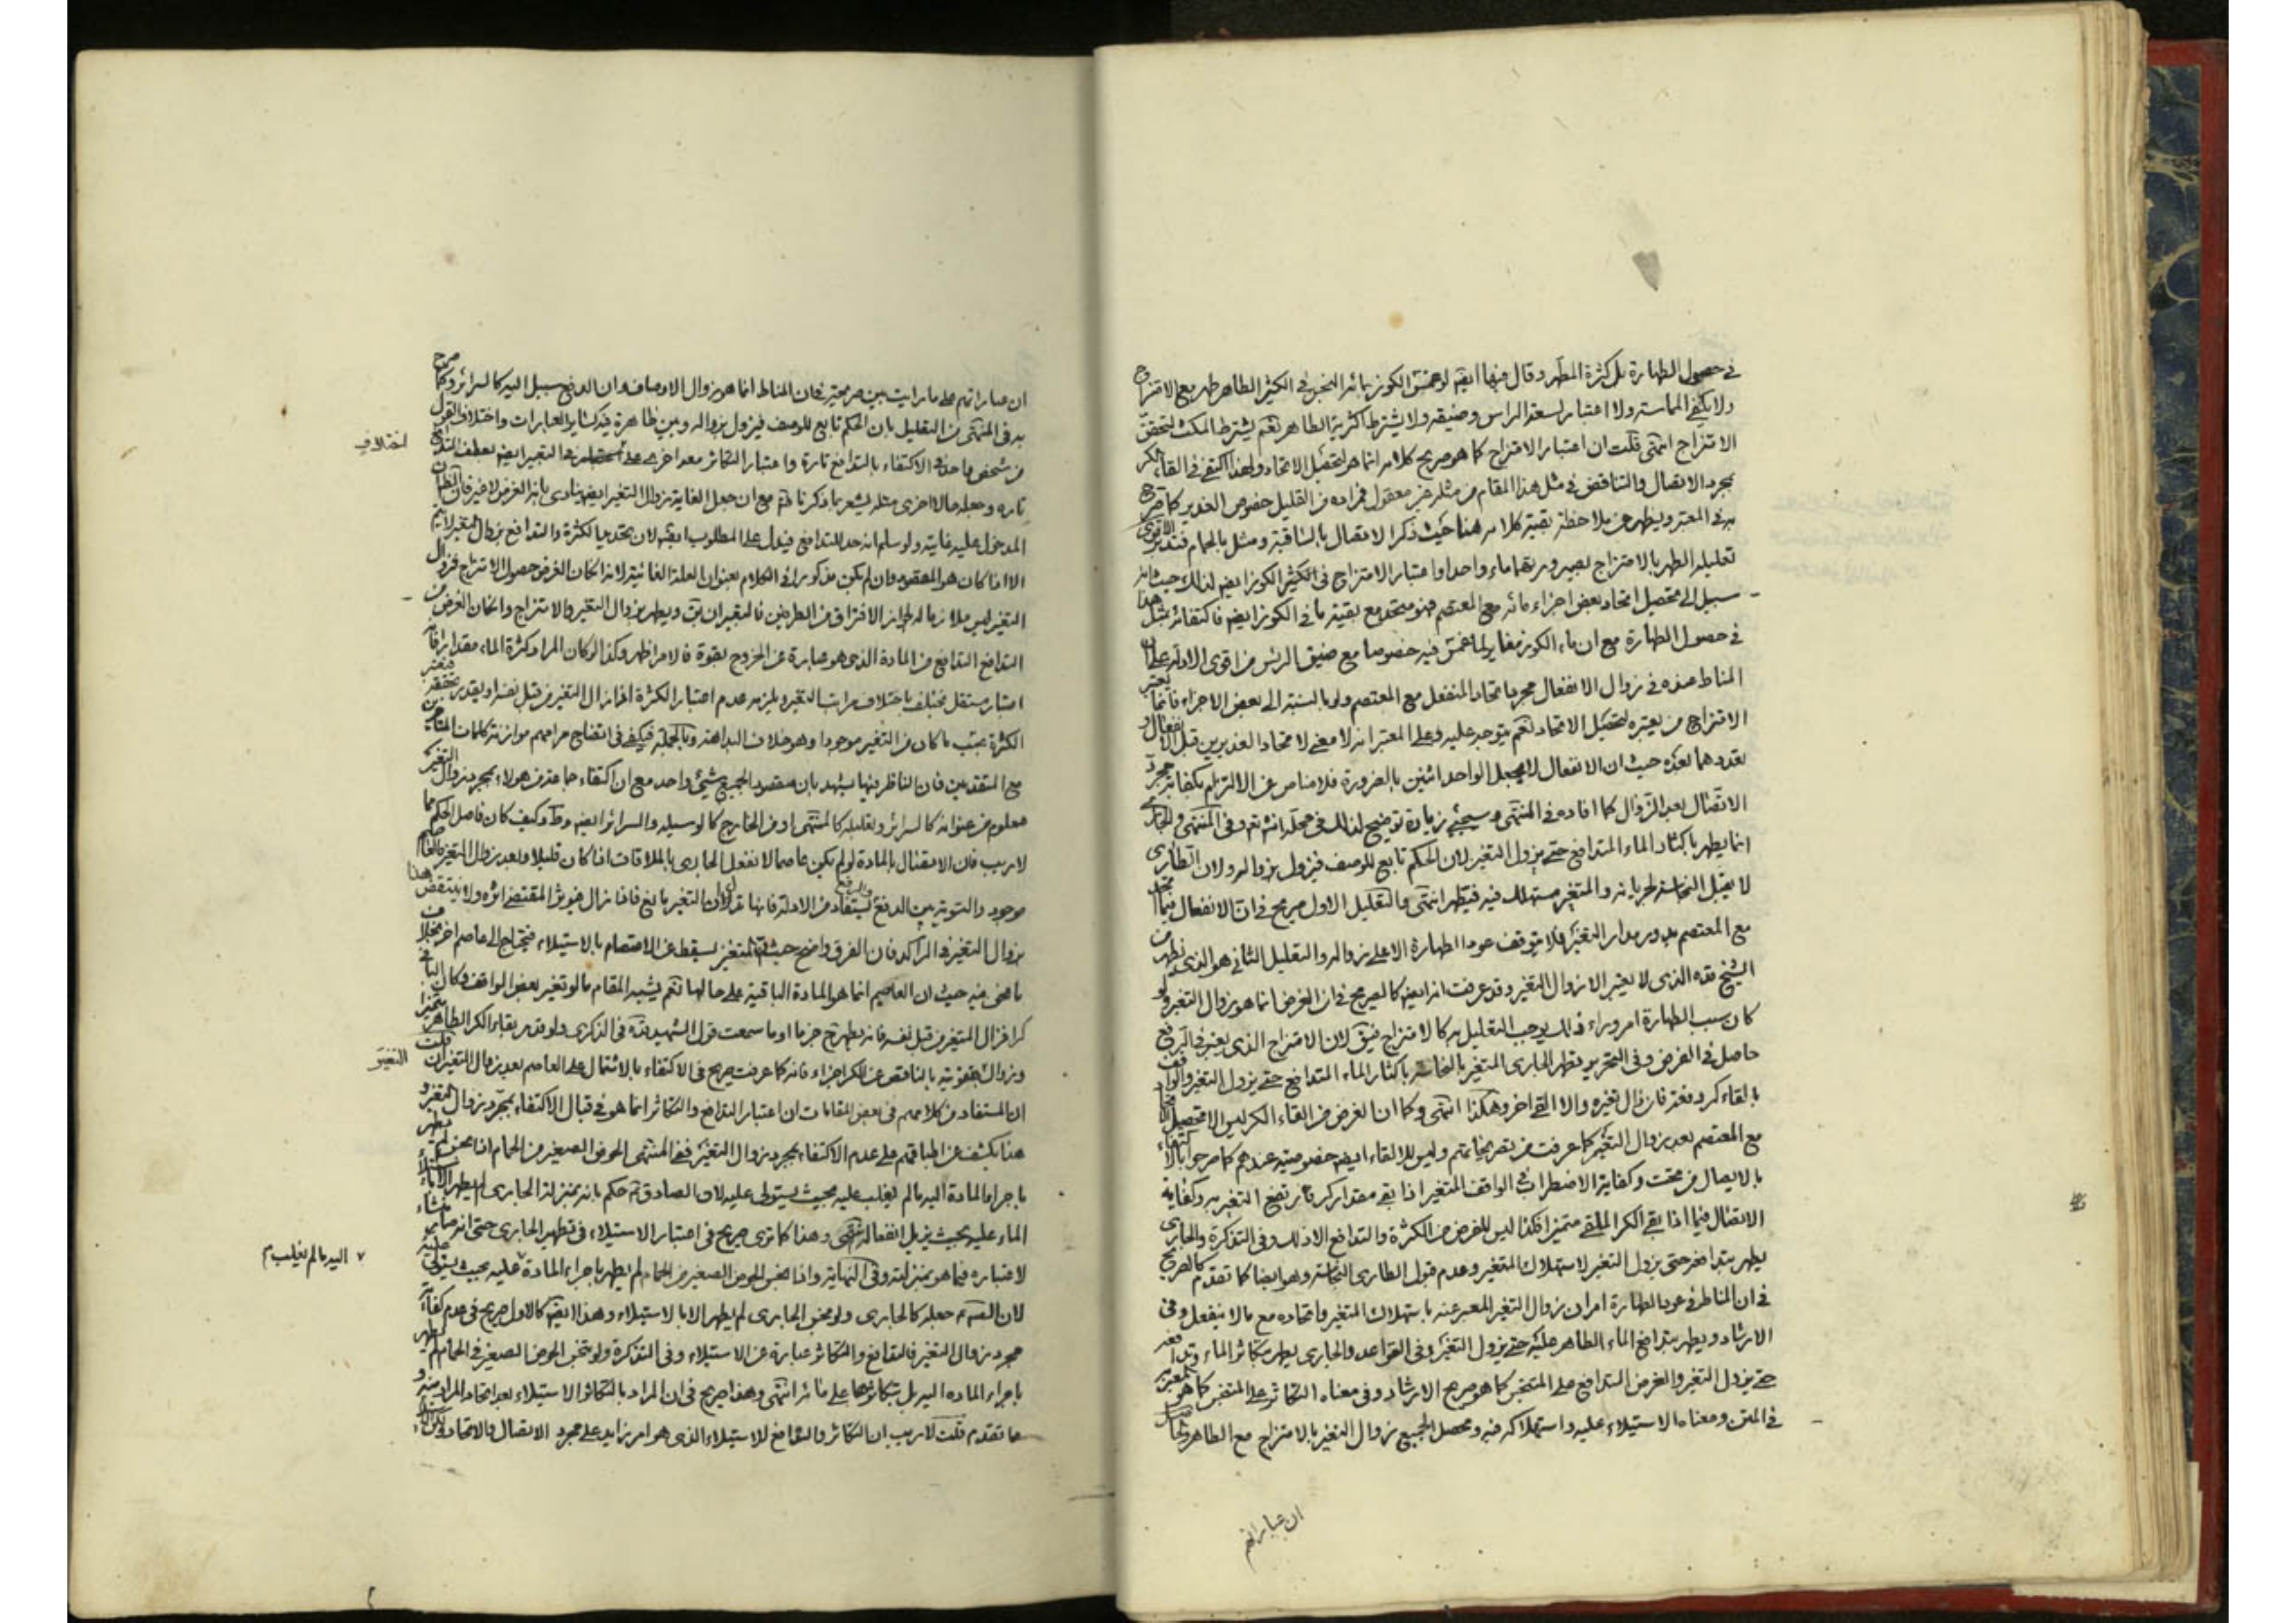 في حصول الطهارة بل كثرة المطهر وقال فيها ايضا لو غمس الكوز بمائه النجس في الكثير الطاهر طهر مع الامتزاج
ولا يكفي المماسة ولا اعتبار لسعة الراس وضيقه ولا يشترط اكثرية الطاهر نعم يشترط المكث ليتحقق
الامتزاج انتهى قلت ان اعتبار الامتزاج كما هو صريح كلامه انما هو لتحصيل الاتحاد ولهذا اكتفى في القاء الكر
بمجرد الاتصال والتناقض في مثل هذا المقام من مثله غير معقول فمراده من القليل خصوص الغدير كما صرح
به في المعتبر ويظهر من ملاحظة بقية كلامه هنا حيث ذكر الاتصال بالساقية ومثل بالحمام فتدبر
تعليله الطهر بالامتزاج بصيرورتهما ماء واحدا واعتبار الامتزاج في الكثير الكوز ايضا لذلك حيث انه
سبيل الى تحصيل اتحاد بعض اجزاء مائه مع المعتصم فهو متحد مع بقية ما في الكوز ايضا فاكتفائه بمثل هذا
في حصول الطهارة مع ان ماء الكوز مغاير لما غمس فيه خصوصا مع ضيق الراس من اقوى الادلة على ان
المناط عنده في زوال الانفعال مجرد اتحاد المنفعل مع المعتصم ولو بالنسبة الى بعض الاجزاء فانما يعتبر
الامتزاج من يعتبره لتحصيل الاتحاد نعم يتوجه عليه وعلى المعتبر انه لا معنى لاتحاد الغديرين قبل الانفعال و
تعددهما بعده حيث ان الانفعال لا يجعل الواحد اثنين بالضرورة فلا مناص عن الالتزام بكفاية مجرد
الاتصال بعد الزوال كما افاده في المنتهى وسيجئ زيادة توضيح لذلك في محله انش تع وفي المنتهى والجاري
انما يطهر باكثار الماء المتدافع حتى يزول التغير لان الحكم تابع للوصف فيزول بزواله ولان الطاري
لا يقبل النجاسة لجريانه والمتغير مستهلك فيه فيطهر انتهى والتعليل الاول صريح في ان الانفعال فيما اتحد
مع المعتصم يدور مدار التغير فلا يتوقف عود الطهارة الا على زواله والتعليل الثاني هو الذي نظر
الشيخ قده الذي لا يعتبر الا زوال التغير وقد عرفت انه ايضا كالصريح في ان الغرض انما هو زوال التغير ولو
كان سبب الطهارة امر وراء ذلك يوجب التعليل به كالامتزاج فيق لان الامتزاج الذي يعتبر في الرفع
حاصل في الفرض وفي التحرير يطهر الجاري المتغير بالنجاسة باكثار الماء المتدافع حتى يزول التغير والواقف
بالقاء كر دفعة فان زال تغيره والا القي اخر وهكذا انتهى وكما ان الغرض من القاء الكر ليس الا تحصيل الاتحاد
مع المعتصم بعد زوال التغير كما عرفت من تصريحاتهم وليس للالقاء ايضا خصوصية عندهم كما صرحوا بالاكتفاء
بالايصال من تحت وكفاية الاضطراب في الواقف المتغير اذا بقى مقدار كر فارتفع التغير به وكفاية
الاتصال فيما اذا بقى الكر الملقى متميزا فكذا ليس الغرض من الكثرة والتدافع الا ذلك وفي التذكرة والجاري
يطهر بتدافعه حتى يزول التغير لاستهلاك المتغير وعدم قبول الطاري النجاسة وهو ايضا كما تقدم كالصريح
في ان المناط في عود الطهارة امران زوال التغير المعبر عنه باستهلاك المتغير واتحاده مع ما لا ينفعل وفي
الارشاد ويطهر بتدافع الماء الطاهر عليه حتى يزول التغير وفي القواعد والجاري يطهر بتكاثر الماء وتدافعه
حتى يزول التغير والغرض التدافع على المتنجس كما هو صريح الارشاد وفي معناه التكاثر على المتنجس كما هو
في المتن ومعناه الاستيلاء عليه واستهلاكه فيه ومحصل الجميع زوال التغير بالامتزاج مع الطاهر
ان عباراتهم
ان عباراتهم على ما رايت بين صريحة فان المناط انما هو زوال الاوصاف وان الدفع سبيل اليه كالسرائر وكما صرح
به في المنتهى من التعليل بان الحكم تابع للوصف فيزول بزواله وبين ظاهرة فيه كسائر العبارات واختلاف القول
اختلاف
من شخص واحد في الاكتفاء بالتدافع تارة واعتبار التكاثر معه اخرى التعبير ايضا بعطف التدافع
تارة وجعله حالا اخرى مثله يشعر بما ذكرنا ثم مع ان جعل الغاية زوال التغير ايضا ينادي بانه الغرض لا غير فان الظان
المدخول عليه غاية ولو سلم انه حد للتدافع فيدل على المطلوب ايضا لان تحديد الكثرة والتدافع بزوال التغير لا يتم
الا اذا كان هو المقصود وان لم يكن مذكورا في الكلام بعنوان العلة الغائية لانه اذا كان الغرض حصول الامتزاج فزوال
التغير ليس ملازما له لجواز الافتراق من الطرفين فالتعبير ان يق ويطهر بزوال التغير والامتزاج وان كان الغرض من
التدافع التدافع من المادة الذي هو عبارة عن الخروج بقوة فالامر اظهر وكذا لو كان المراد كثرة الماء مقدارا فانه
اعتبار مستقل يختلف باختلاف مراتب التغير ويلزمه عدم اعتبار الكثرة اذا زال التغير من قبل نفسه او بقدر
الكثرة بحسب ما كان من التغير موجودا وهو خلاف البداهة وبالجملة فيكفي في اتضاح مرامهم موازنة كلمات المتاخرين
مع المتقدمين فان الناظر فيها يشهد بان مقصود الجميع شيئ واحد مع ان اكتفاء جماعة من هؤلاء بمجرد زوال التغير
معلوم من عنوانه كالسرائر وتعليله كالمنتهى او من الخارج كالوسيلة والسرائر ايضا وط وكيف كان فاصل الحكم مما
لا ريب فان الاتصال بالمادة لو لم يكن عاصما لانفعل الجاري بالملاقات اذا كان قليلا وبعد زوال التغير فالعاصم
موجود والتسوية بين الدفع والرفع يستفاد من الادلة فانها تدل ان التغير مانع فاذا زال فيؤثر المقتضي اثره ولا ينتقض هذا
بزوال التغير في الراكد فان الفرق واضح حيث المتغير يسقط عن الاعتصام بالاستيلاء فيحتاج الى عاصم اخر بخلاف
ما نحن فيه حيث ان العاصم انما هو المادة الباقية على حالها نعم يشبه المقام ما لو تغير بعض الواقف وكان الباقي
كرا فزال المتغير من قبل نفسه فانه يطهر ح جزما او ما سمعت قول الشهيد قده في الذكرى ولو قدر بقاء الكر الطاهر متميزا
وزوال عفونته بالناقص عن الكر اجزاء فانه كما عرفت صريح في الاكتفاء بالاشتمال على العاصم بعد زوال التغير فان قلت
التغير
ان المستفاد من كلامهم في بعض المقامات ان اعتبار التدافع والتكاثر انما هو في قبال الاكتفاء بمجرد زوال التغير و
هذا يكشف عن اطباقهم على عدم الاكتفاء بمجرد زوال التغير ففي المنتهى الحوض الصغير من الحمام اذا نجس لم يطهر
باجراء المادة اليه ما لم يغلب عليه بحيث يستولي عليه لان الصادق ع حكم بانه بمنزلة الجاري
الماء عليه بحيث يزيل انفعاله انتهى وهذا كما ترى صريح في اعتبار الاستيلاء في تطهير الجاري حتى انه
لاعتباره فيما هو بمنزلته وفي النهاية واذا نجس الحوض الصغير من الحمام لم يطهر باجراء المادة عليه بحيث يستولي
٧ اليه ما لم يغلب م
لان الص ع جعله كالجاري ولو نجس الجاري لم يطهر الا بالاستيلاء وهذا ايضا كالاول صريح في عدم كفاية
مجرد زوال التغير فالتدافع والتكاثر عبارة عن الاستيلاء وفي التذكرة ولو تنجس الحوض الصغير في الحمام لم يطهر
باجراء المادة اليه بل بتكاثرها على مائه انتهى وهذا صريح في ان المراد بالتكاثر الاستيلاء بعد اتحاد المراد منه و
ما تقدم قلت لا ريب ان التكاثر والتدافع للاستيلاء الذي هو امر زايد على مجرد الاتصال والاتحاد